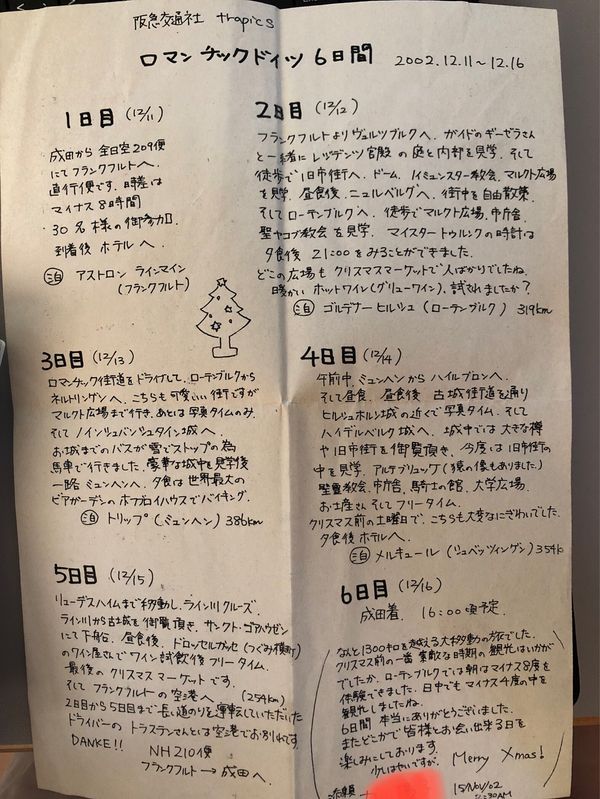 阪急交通社 tropics
ロマンチックドイツ 6日間 2002.12.11～12.16
1日目 (12/11)
成田から 全日空209便
にてフランクフルトへ.
直行便です. 時差は
マイナス8時間
30名様の御参加.
到着後 ホテルへ.
泊 アストロン ラインマイン
(フランクフルト)
2日目 (12/12)
フランクフルトよりヴュルツブルクへ. ガイドのギーゼラさん
と一緒に レジデンツ宮殿の庭と内部を見学. そして
徒歩で旧市街へ. ドーム, ノイミュンスター教会, マルクト広場
を見学. 昼食後, ニュルンベルグへ. 街中を自由散策.
そしてローテンブルグへ. 徒歩でマルクト広場, 市庁舎,
聖ヤコブ教会を見学. マイスタートゥルンクの時計は
夕食後 21:00をみることができました.
どこの広場も クリスマスマーケットで人ばかりでしたね.
暖かい ホットワイン(グリューワイン), 試されましたか?
泊 ゴルデナーヒルシュ (ローテンブルク) 319km
3日目 (12/13)
ロマンチック街道をドライブして, ローテンブルクから
ネルトリンゲンへ. こちらも可愛いい街ですが
マルクト広場まで行き, あとは写真タイムのみ.
そして ノインシュバンシュタイン城へ.
お城までのバスが雪でストップの為
馬車で行きました. 豪華な城中を見学後
一路 ミュンヘンへ. 夕食は世界最大の
ビアガーデンのホフブロイハウスでバイキング.
泊 トリップ (ミュンヘン) 386km
4日目 (12/14)
午前中, ミュンヘンから ハイルブロンへ.
そして昼食. 昼食後 古城街道を通り
ヒルシュホルン城の近くで写真タイム. そして
ハイデルベルク城へ. 城中では大きな樽
や旧市街を御覧頂き, 今度は旧市街の
中を見学. アルテブリュッケ(猿の像もありました)
聖霊教会, 市庁舎, 騎士の館, 大学広場.
お土産さん そしてフリータイム.
クリスマス前の土曜日で, こちらも大変なにぎわいでした.
夕食後 ホテルへ.
泊 メルキュール (シュベッツィンゲン) 354k
5日目 (12/15)
リューデスハイムまで移動し, ライン川クルーズ.
ライン川から古城を御覧頂き, サンクト・ゴアハウゼン
にて下船. 昼食後, ドロッセルガッセ (つぐみ横町)
のワイン屋さんでワイン試飲後 フリータイム.
最後の クリスマスマーケットです.
そして フランクフルトの空港へ (254km)
2日目から5日目まで長い道のりを運転していただいた
ドライバーの トラステンさんとは空港でお別れです.
DANKE!! NH210便
フランクフルト → 成田へ.
6日目 (12/16)
成田着. 16:00頃予定.
なんと1300キロを越える大移動の旅でした.
クリスマス前の一番素敵な時期の観光はいかが
でしたか. ローテンブルクでは朝はマイナス8度を
体験できました. 日中でもマイナス4度の中を
観光しましたね.
6日間 本当にありがとうございました.
またどこかで皆様とお会い出来る日を
楽しみにしております.
少しはやいですが, Merry Xmas!
添乗員 15/Nov/02